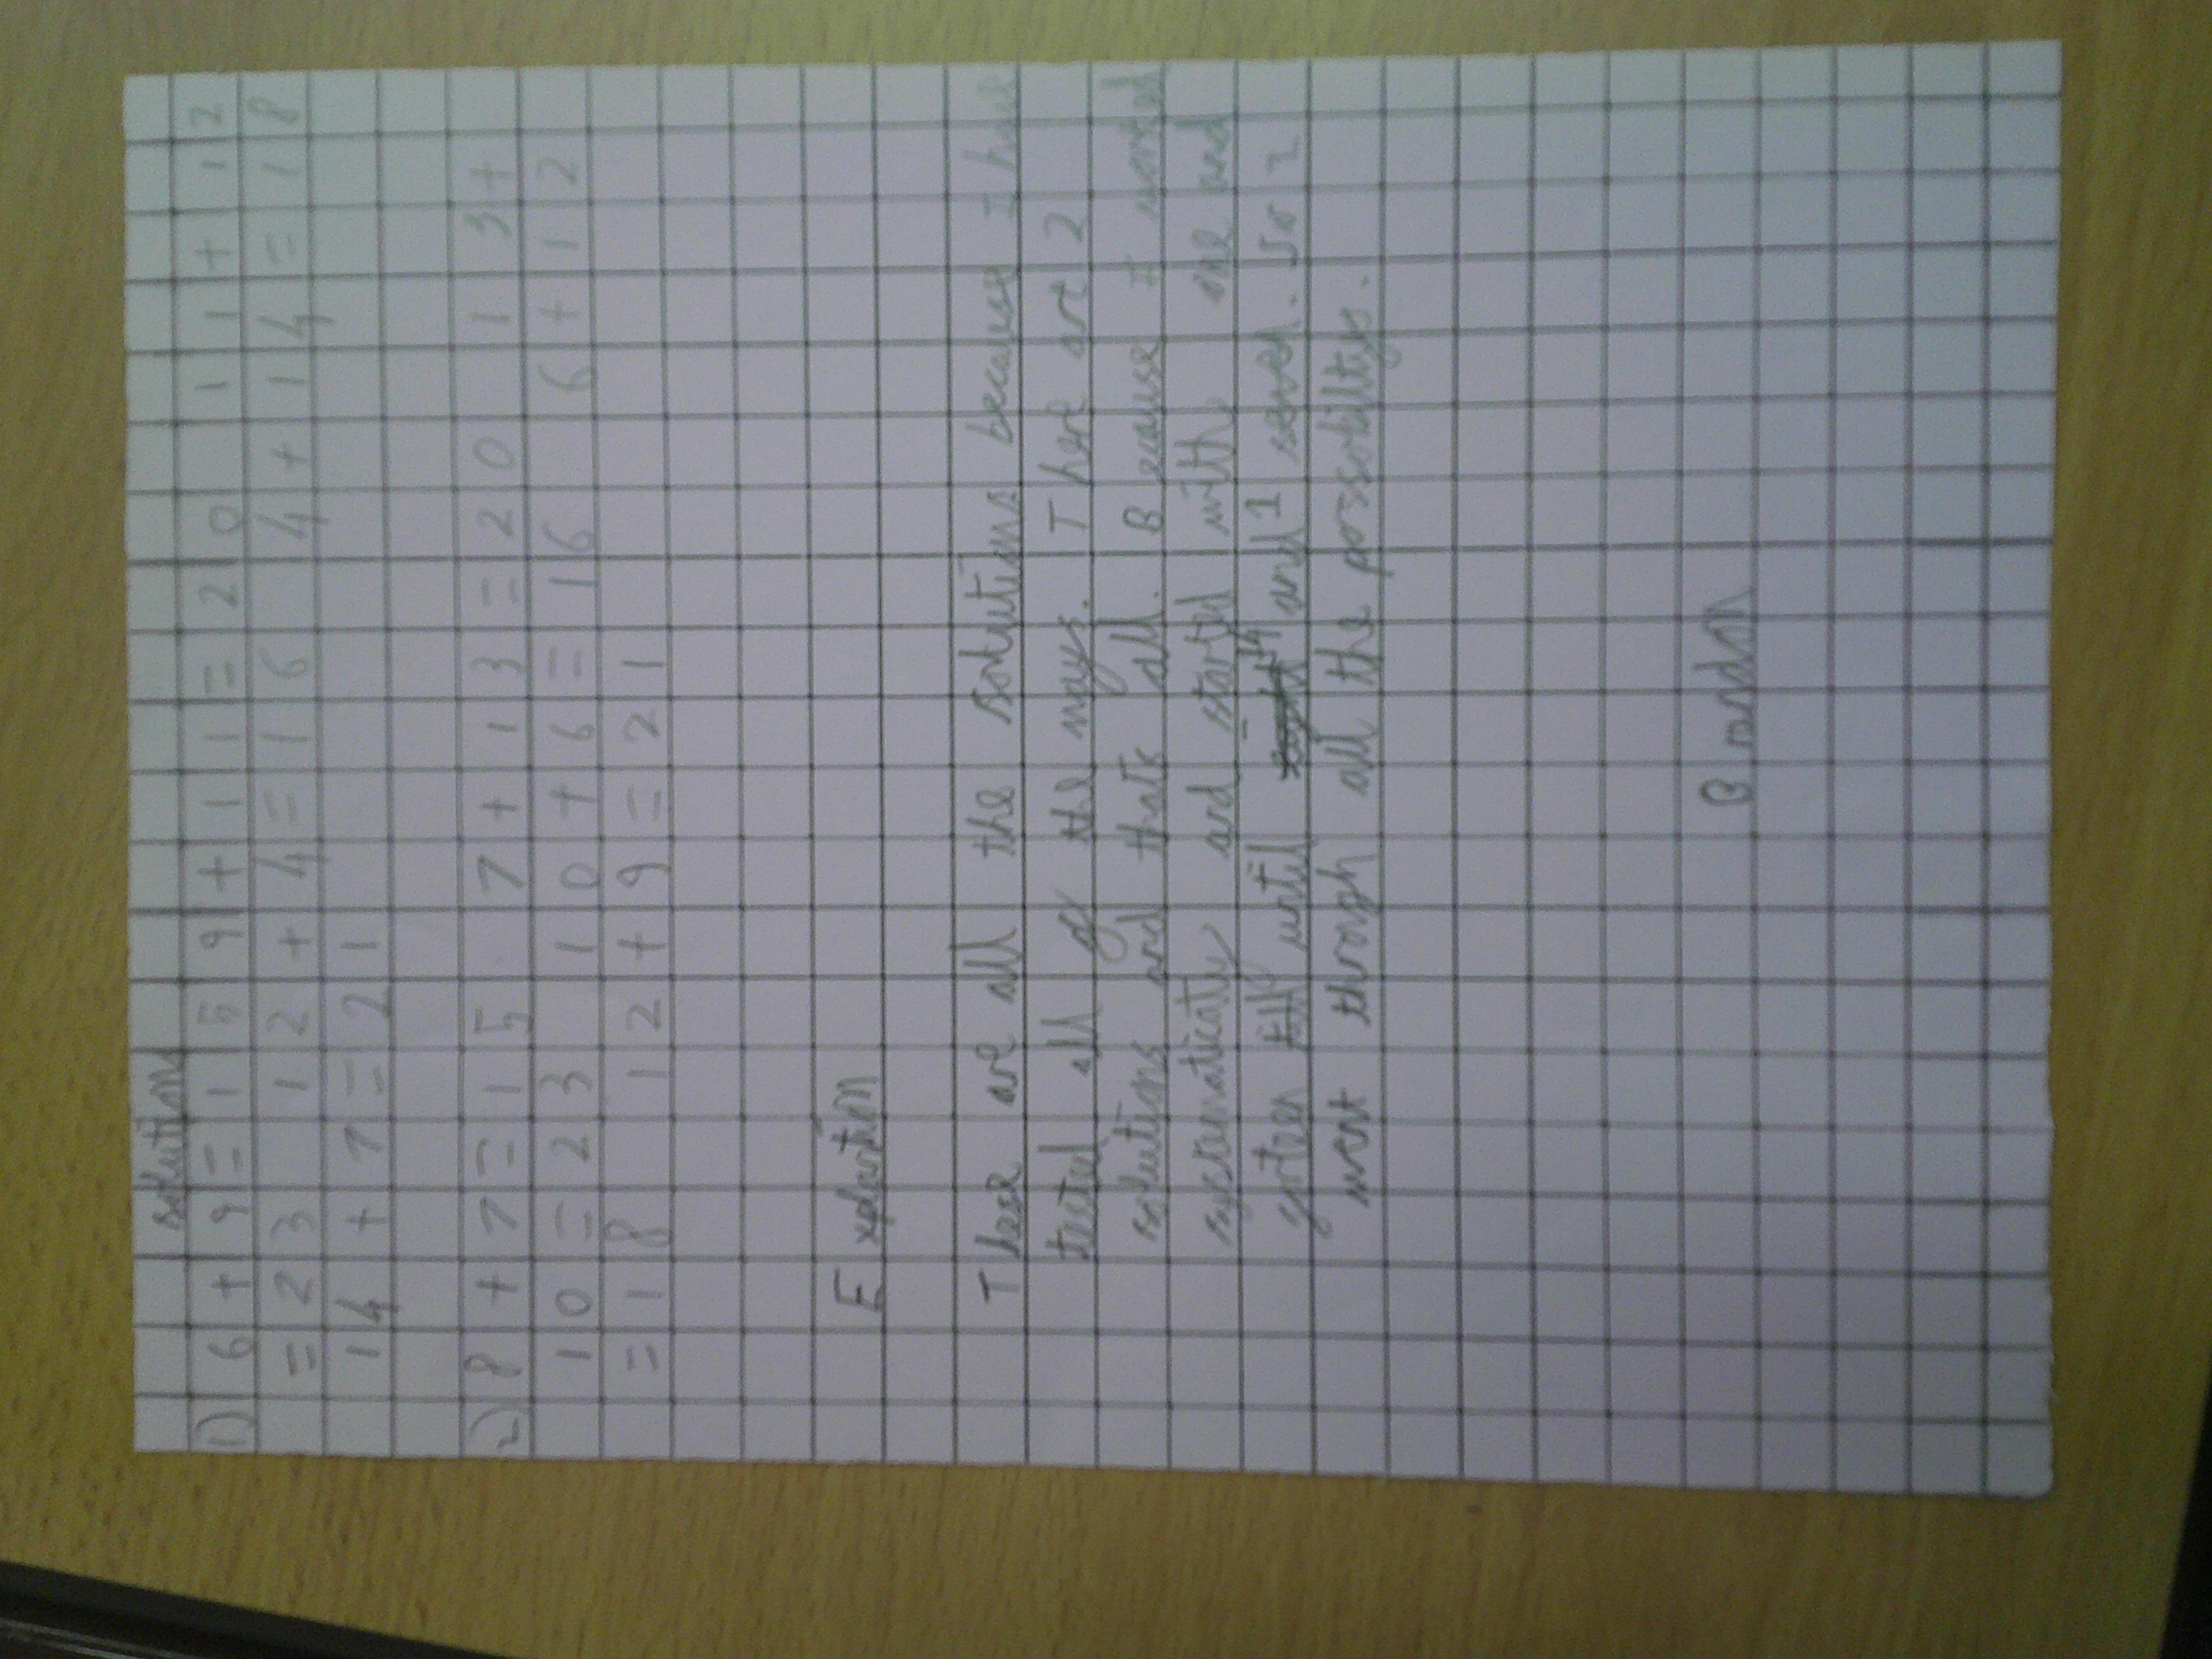 solution
1) 6 + 9 = 15 9 + 11 = 20 11 + 12
= 23 12 + 4 = 16 4 + 14 = 18
14 + 7 = 21
2) 8 + 7 = 15 7 + 13 = 20 13 +
10 = 23 10 + 6 = 16 6 + 12
= 18 12 + 9 = 21
Explantion
These are all the solutions because I have
tested all of the ways. There are 2
solutions and thats all. Because I worked
systematicaty and started with one and
till until 14 and 1 seved. So I
went through all the possobilitys.
Brandon